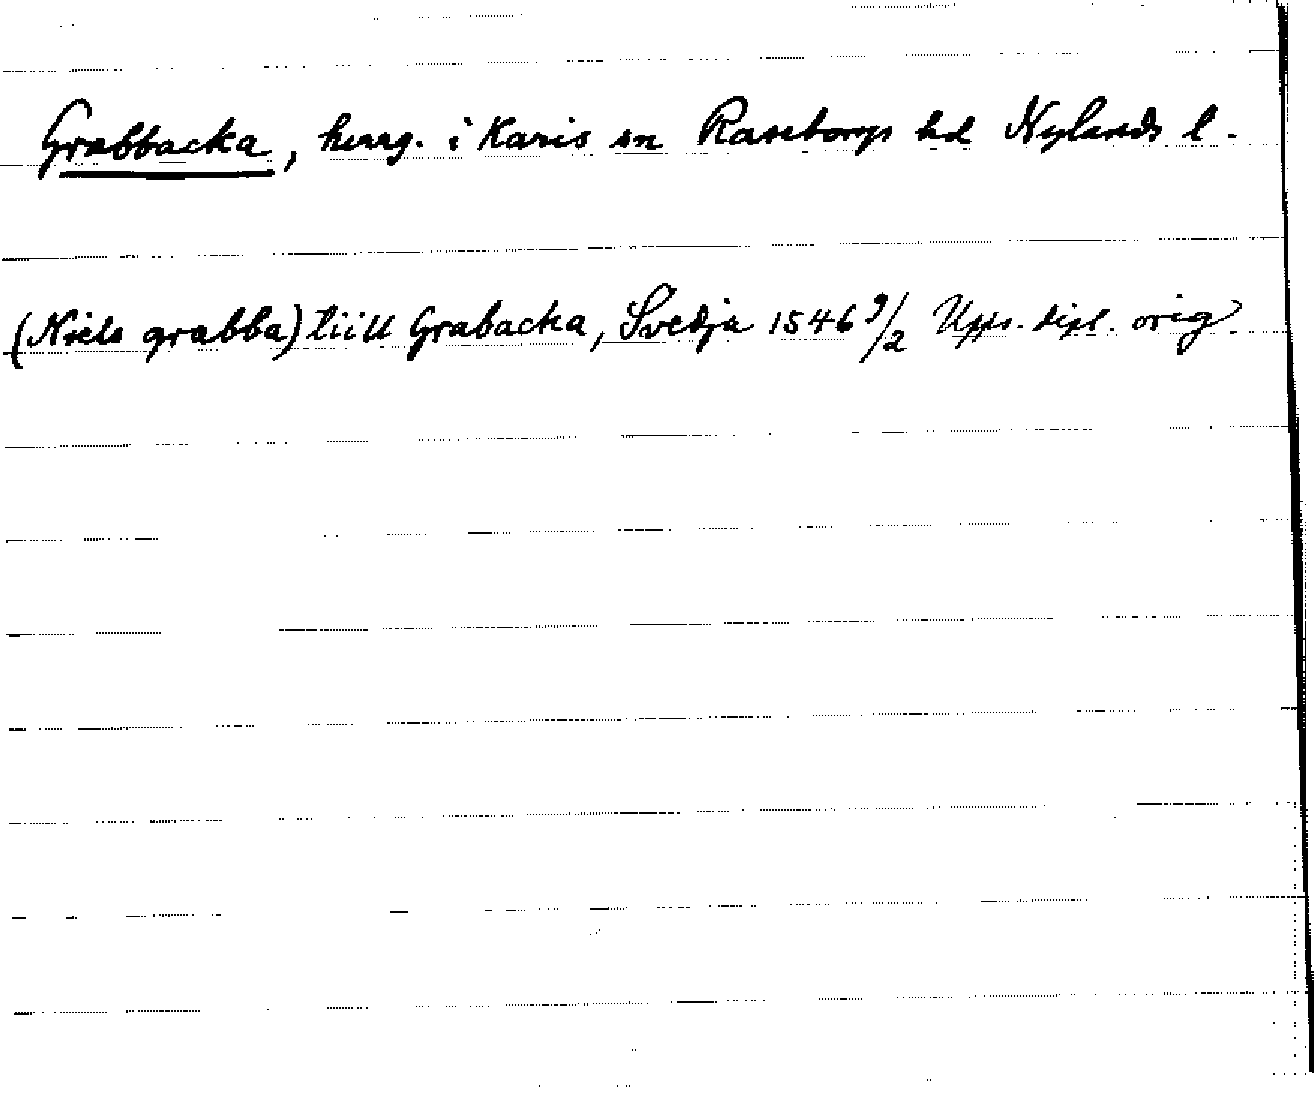 Grabbacka, herrg. i Karis sn Raseborgs hd Nylands l.
(Niels grabba) tiill Grabacka, Svedja 1546 9/2 Upps. dipl. orig.